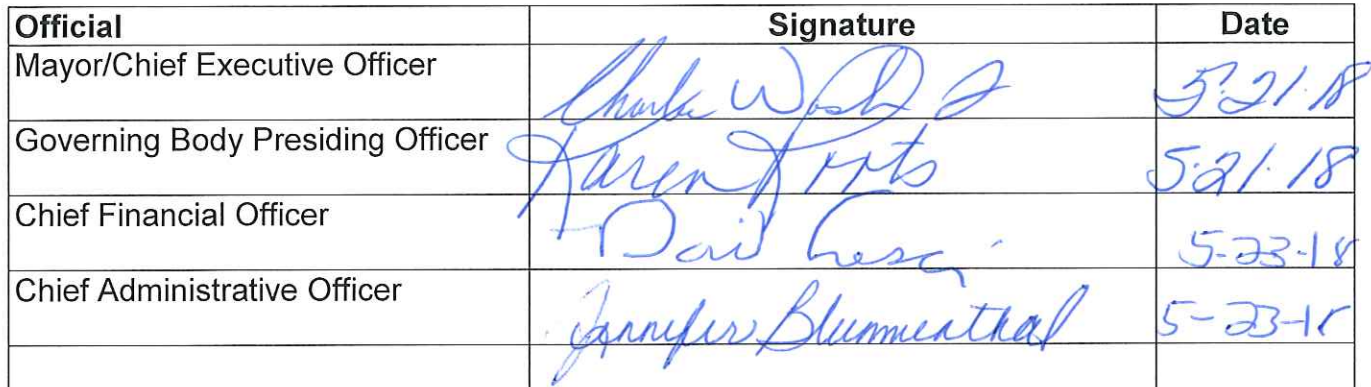 Official Signature Date
Mayor/Chief Executive Officer 5.21.18
Governing Body Presiding Officer Karen 5.21.18
Chief Financial Officer 5-23-18
Chief Administrative Officer Jennifer Blumenthal 5-23-18